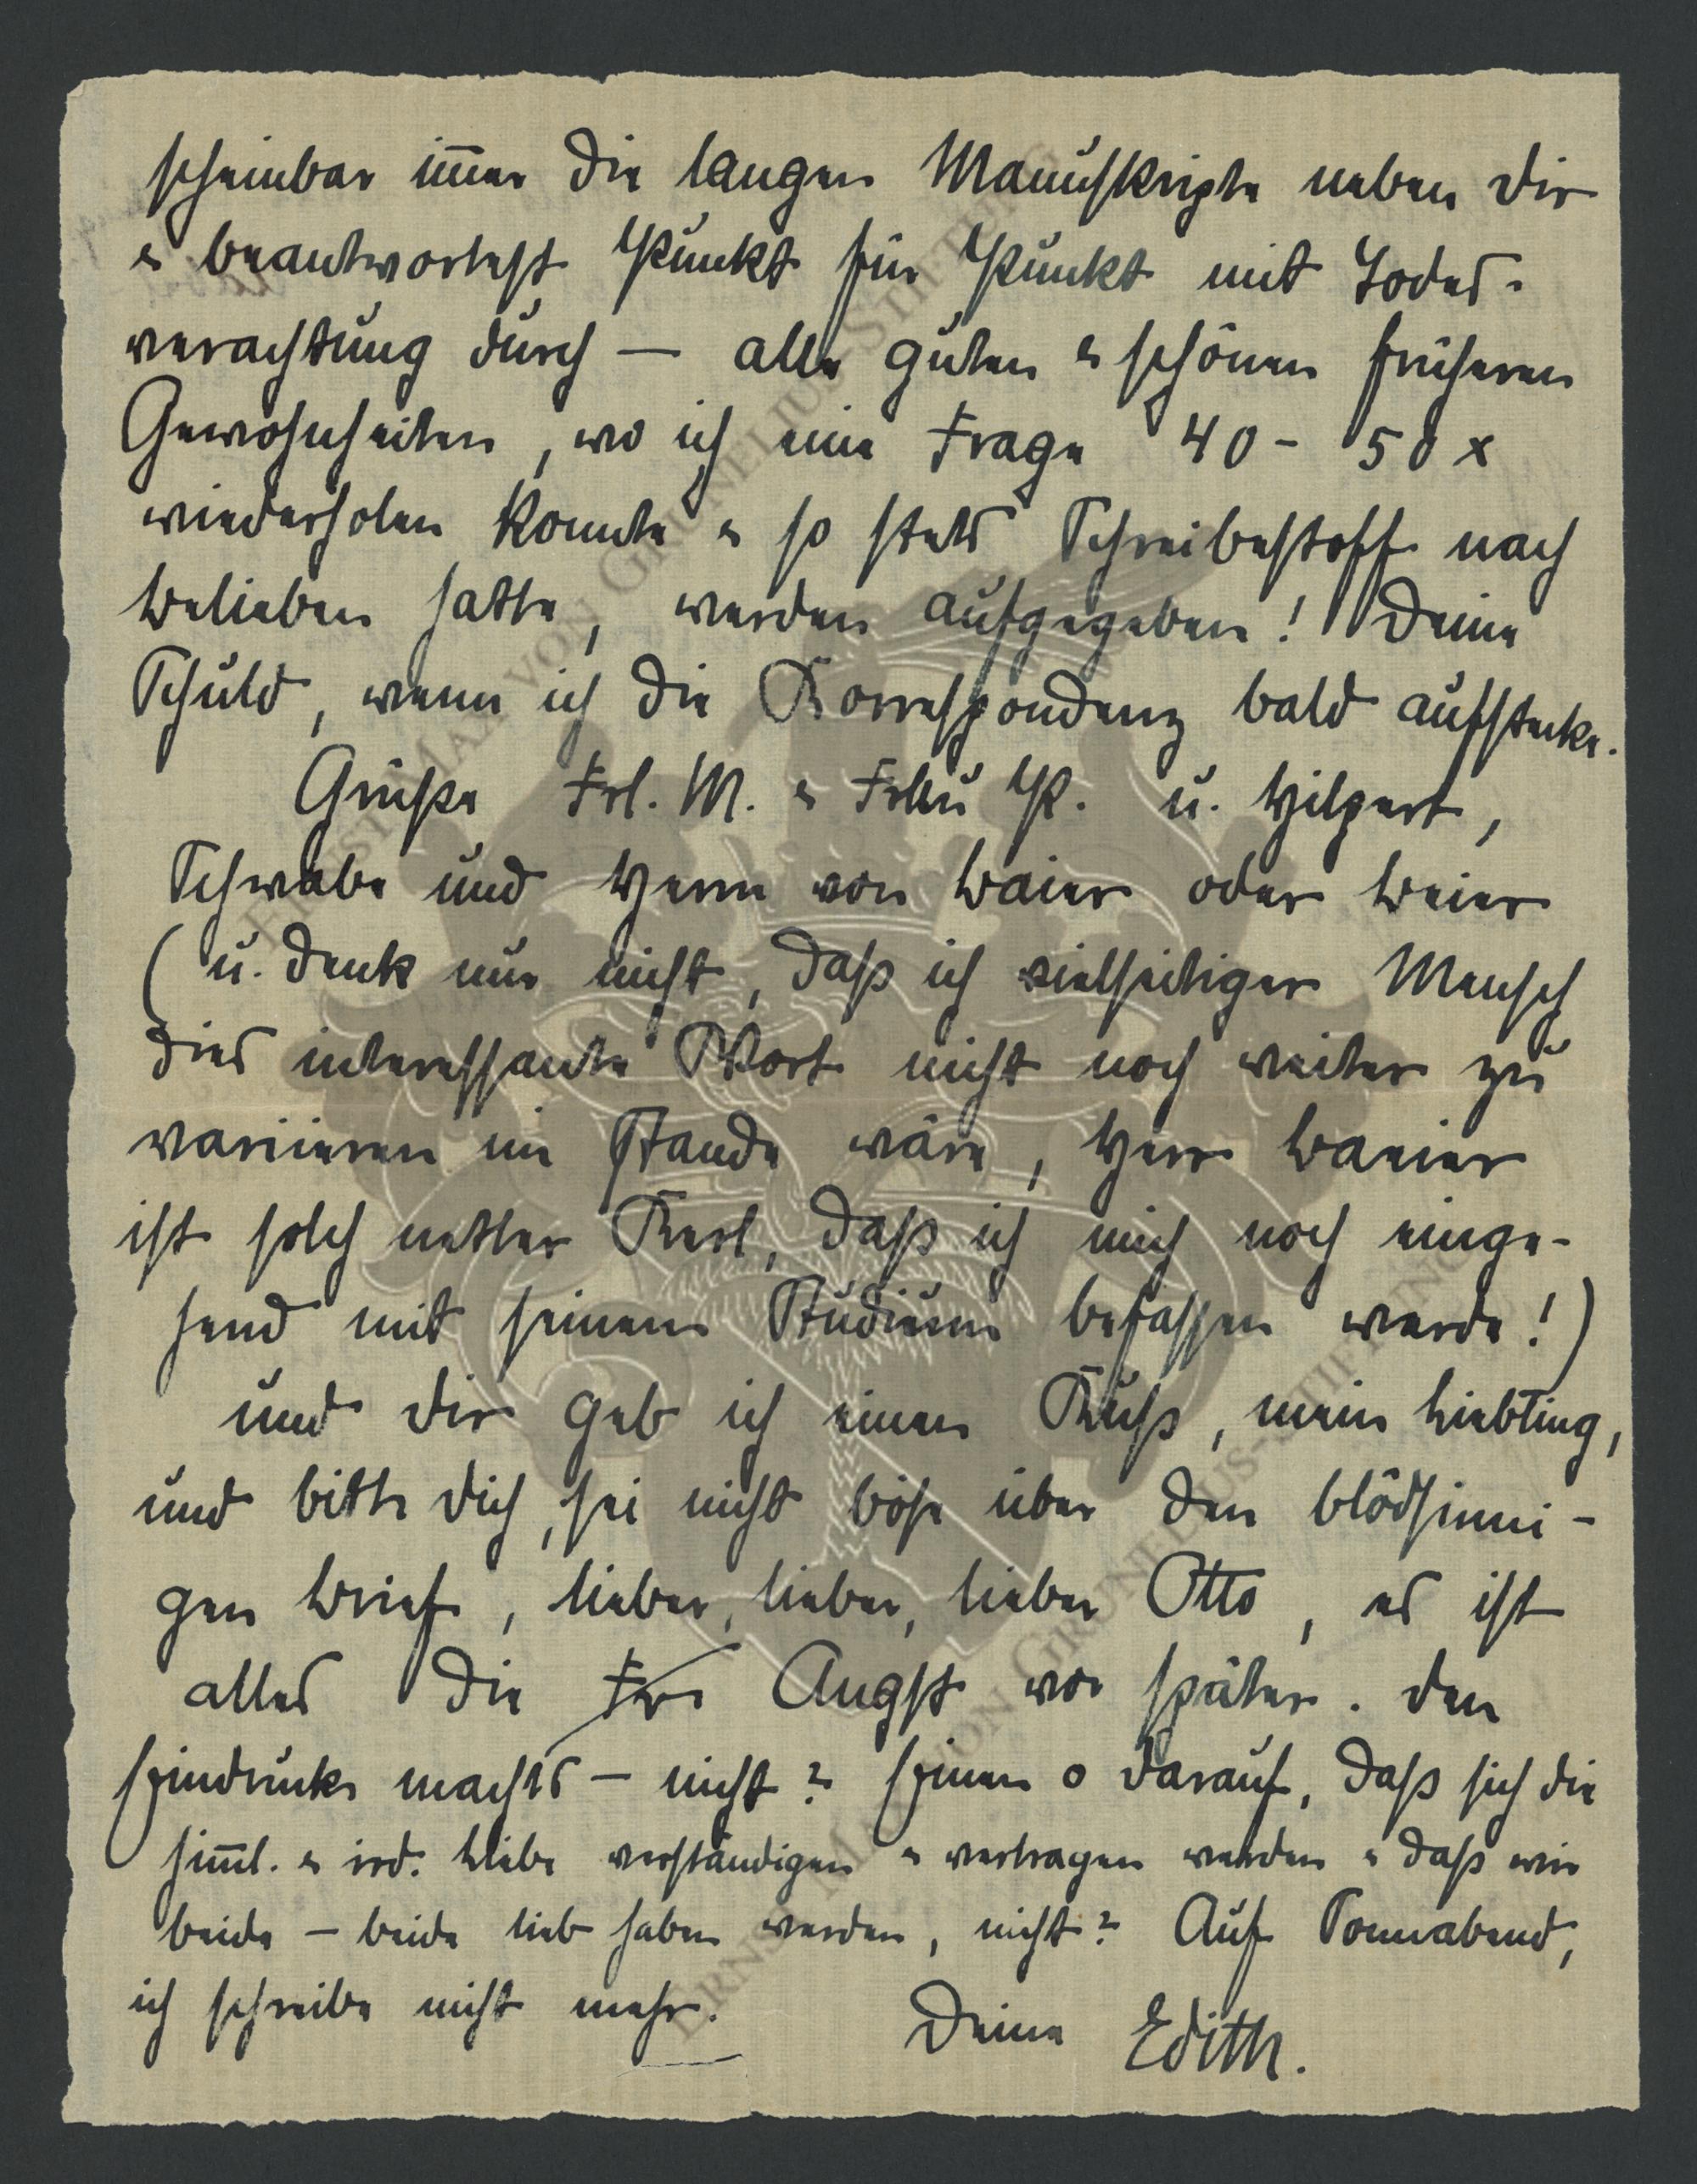 scheinbar im̅er die langen Manuskripte neben Dir
& beantwortest Punkt für Punkt mit Todes-
verachtung durch — alle guten & schönen früheren
Gewohnheiten, wo ich eine Frage 40 - 50 x
wiederholen konnte & so stets Schreibestoff nach
Belieben hatte, werden aufgegeben! Deine
Schuld, wenn ich die Korrespondenz bald aufstecke.
Grüße Frl. M. & Frau P. u. Hilpert,
Schwabe und Herrn von Baier oder Beier
(u. denk nur nicht, daß ich vielseitiger Mensch
dies interessante Wort nicht noch weiter zu
variieren im Stande wäre, Herr Baeier
ist solch netter Kerl, daß ich mich noch einge-
hend mit seinem Studium befassen werde!)
und Dir geb ich einen Kuß, mein Liebling,
und bitte Dich, sei nicht böse über den blödsinni-
gen Brief, lieber, lieber, lieber Otto, es ist
alles die Angst vor später. Den
Eindruck machts — nicht? Einen o darauf, daß sich die
him̅l. & ird. Liebe verständigen & vertragen werden & daß wir
beide — beide lieb haben werden, nicht? Auf Sonnabend,
ich schreibe nicht mehr.
Deine Edith.
ERNST MAX VON GRUNELIUS-STIFTUNG
ERNST MAX VON GRUNELIUS-STIFTUNG